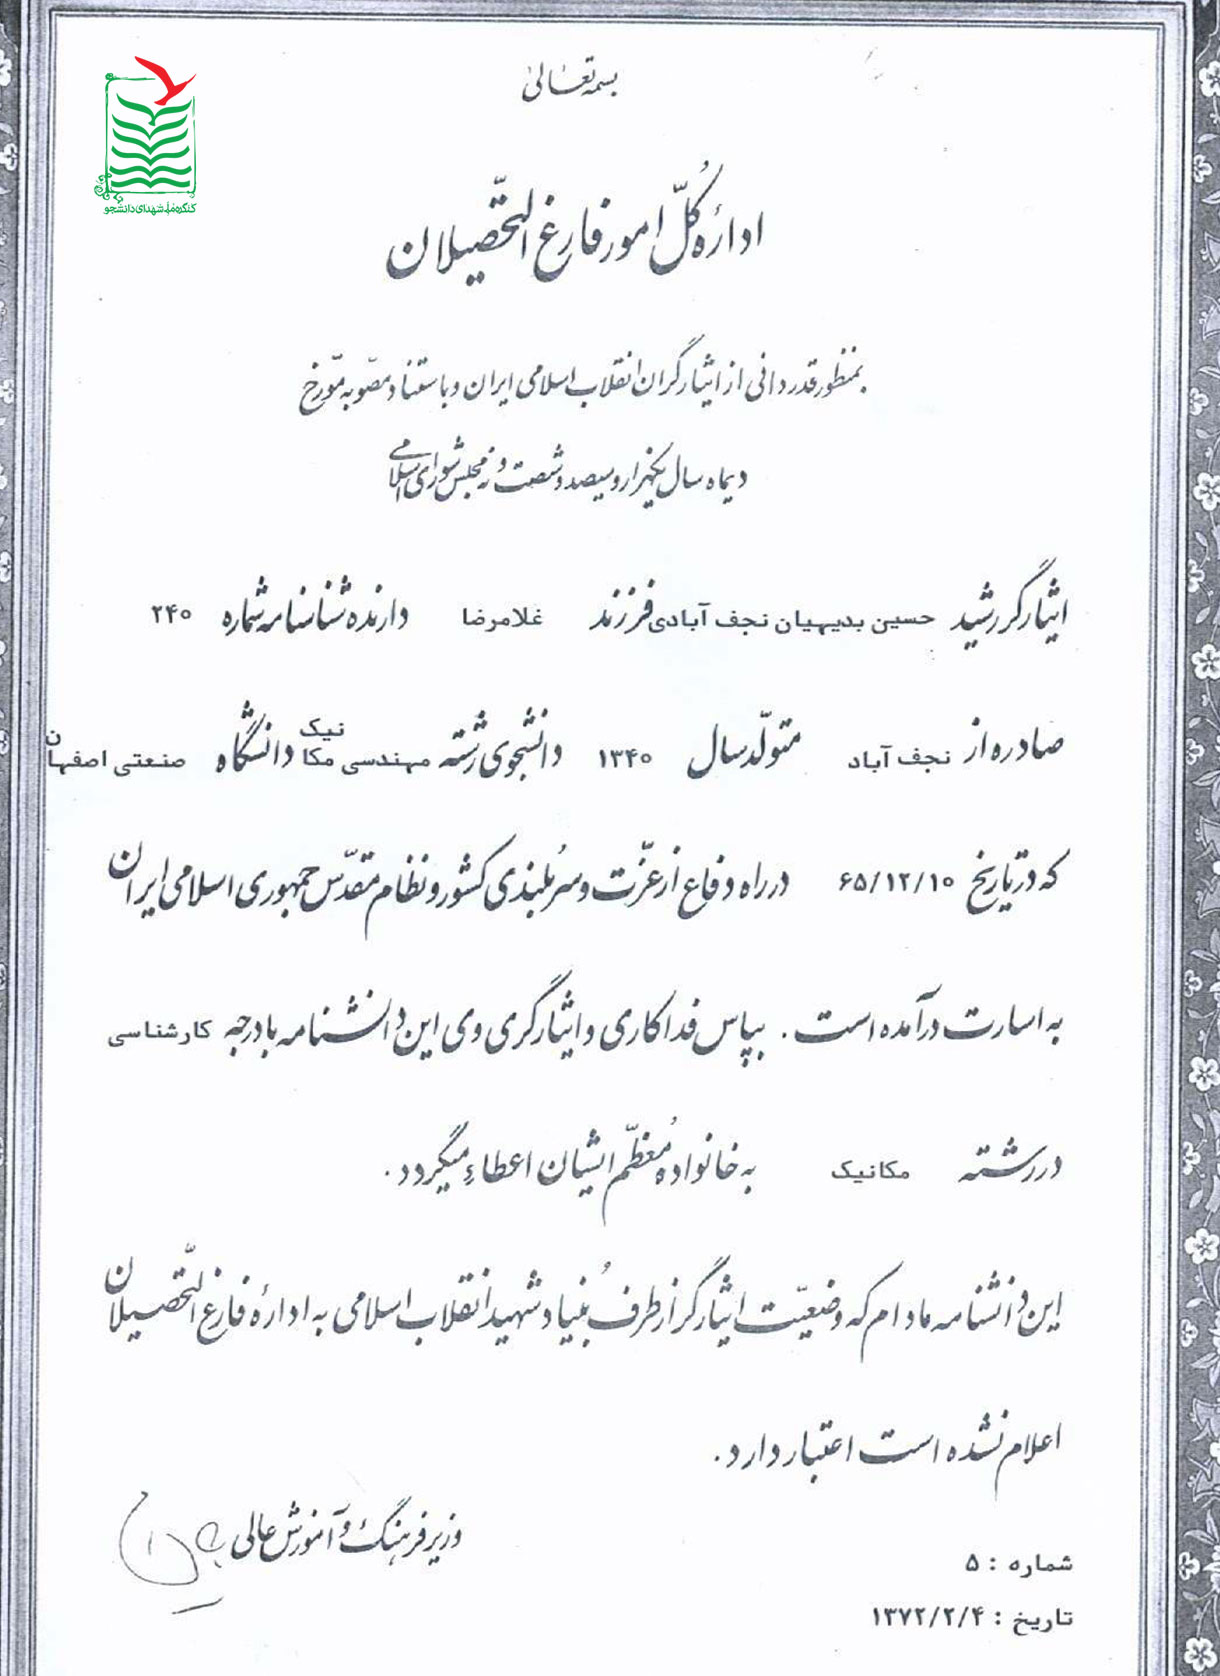 کنگره ملی شهدای دانشجو
بسمه تعالی
ادارهٔ کُلّ امور فارغ التّحصیلان
بمنظور قدردانی از ایثارگران انقلاب اسلامی ایران و باستناد مصّوبه مورّخ
دیماه سال یکهزار و سیصد و شصت و نه مجلس شورای اسلامی
ایثارگر رشید حسین بدیهیان نجف آبادی فرزند غلامرضا دارنده شناسنامه شماره ۲۴۰
صادره از نجف آباد متولّد سال ۱۳۴۰ دانشجوی رشته مهندسی مکانیک دانشگاه صنعتی اصفهان
که در تاریخ ۶۵/۱۲/۱۰ در راه دفاع از عزّت و سربُلندی کشور و نظام مقدّس جمهوری اسلامی ایران
به اسارت درآمده است . بپاس فداکاری و ایثارگری وی این دانشنامه با درجه کارشناسی
در رشته مکانیک به خانواده مُعظّم ایشان اعطاءِ میگردد .
این دانشنامه مادام که وضعیّت ایثارگر از طرف بُنیاد شهید انقلاب اسلامی به ادارهٔ فارغ التّحصیلان
اعلام نشده است اعتبار دارد .
وزیر فرهنگ و آموزش عالی
شماره : ۵
تاریخ : ۱۳۷۲/۲/۴